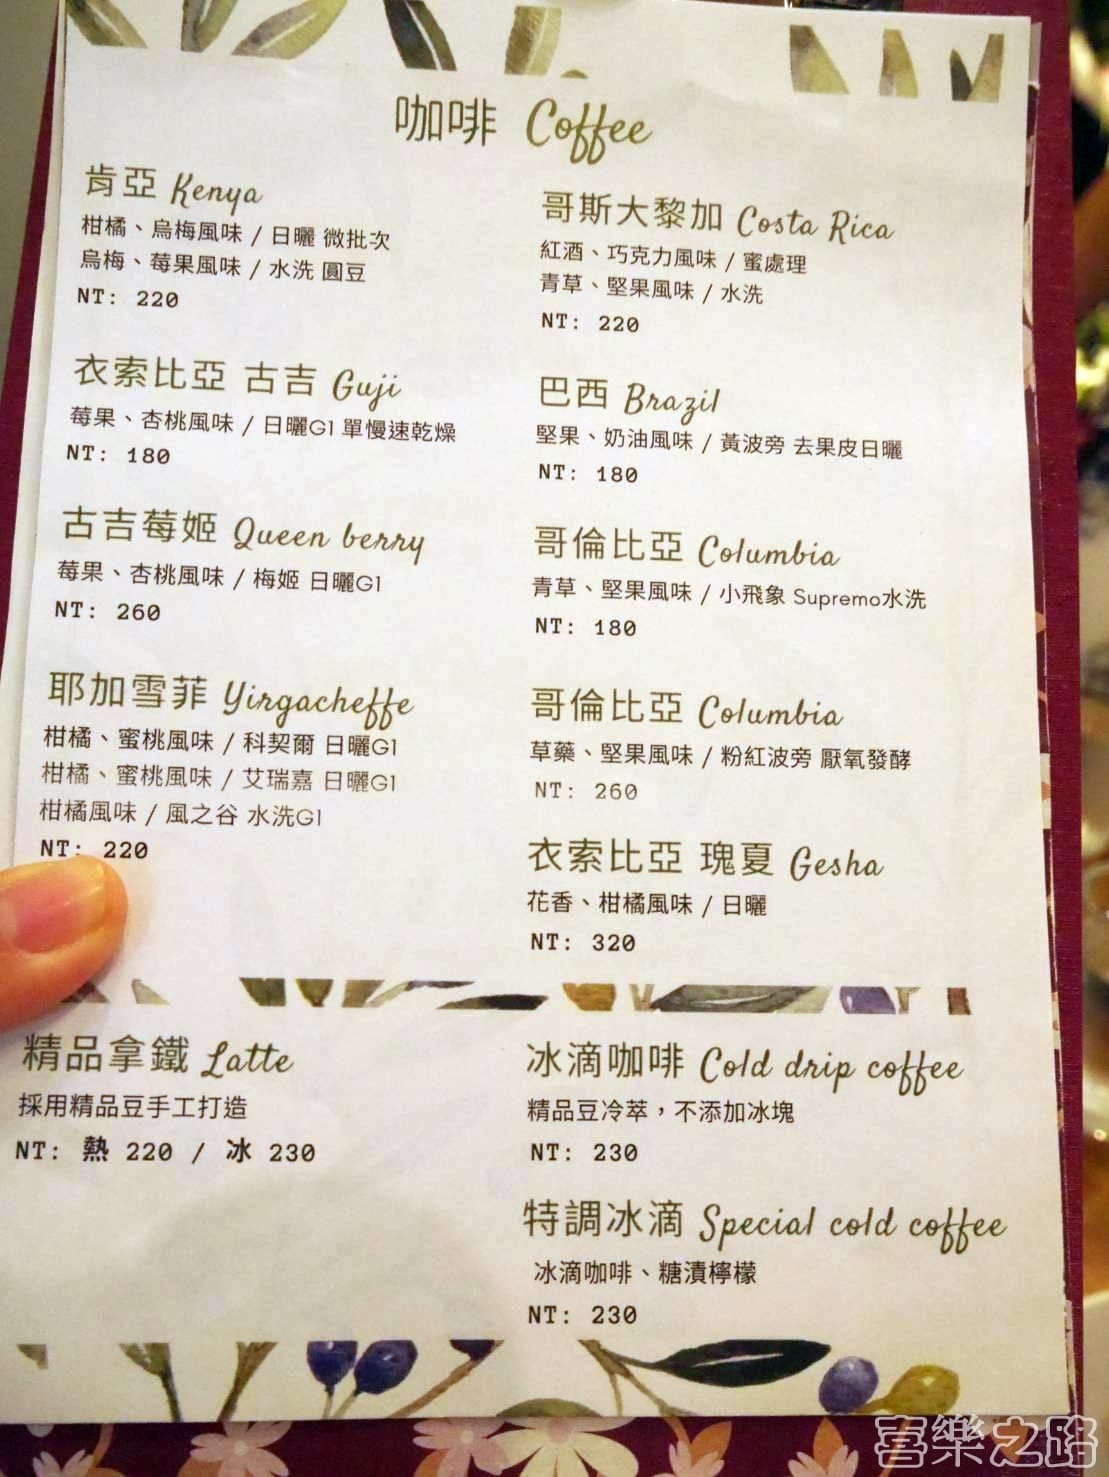 咖啡 Coffee
肯亞 Kenya
柑橘、烏梅風味 / 日曬 微批次
烏梅、莓果風味 / 水洗 圓豆
NT: 220
衣索比亞 古吉 Guji
莓果、杏桃風味 / 日曬G1 單慢速乾燥
NT: 180
古吉莓姬 Queen berry
莓果、杏桃風味 / 梅姬 日曬G1
NT: 260
耶加雪菲 Yirgacheffe
柑橘、蜜桃風味 / 科契爾 日曬G1
柑橘、蜜桃風味 / 艾瑞嘉 日曬G1
柑橘風味 / 風之谷 水洗G1
NT: 220
哥斯大黎加 Costa Rica
紅酒、巧克力風味 / 蜜處理
青草、堅果風味 / 水洗
NT: 220
巴西 Brazil
堅果、奶油風味 / 黃波旁 去果皮日曬
NT: 180
哥倫比亞 Columbia
青草、堅果風味 / 小飛象 Supremo水洗
NT: 180
哥倫比亞 Columbia
草藥、堅果風味 / 粉紅波旁 厭氧發酵
NT: 260
衣索比亞 瑰夏 Gesha
花香、柑橘風味 / 日曬
NT: 320
精品拿鐵 Latte
採用精品豆手工打造
NT: 熱 220 / 冰 230
冰滴咖啡 Cold drip coffee
精品豆冷萃，不添加冰塊
NT: 230
特調冰滴 Special cold coffee
冰滴咖啡、糖漬檸檬
NT: 230
喜樂之路